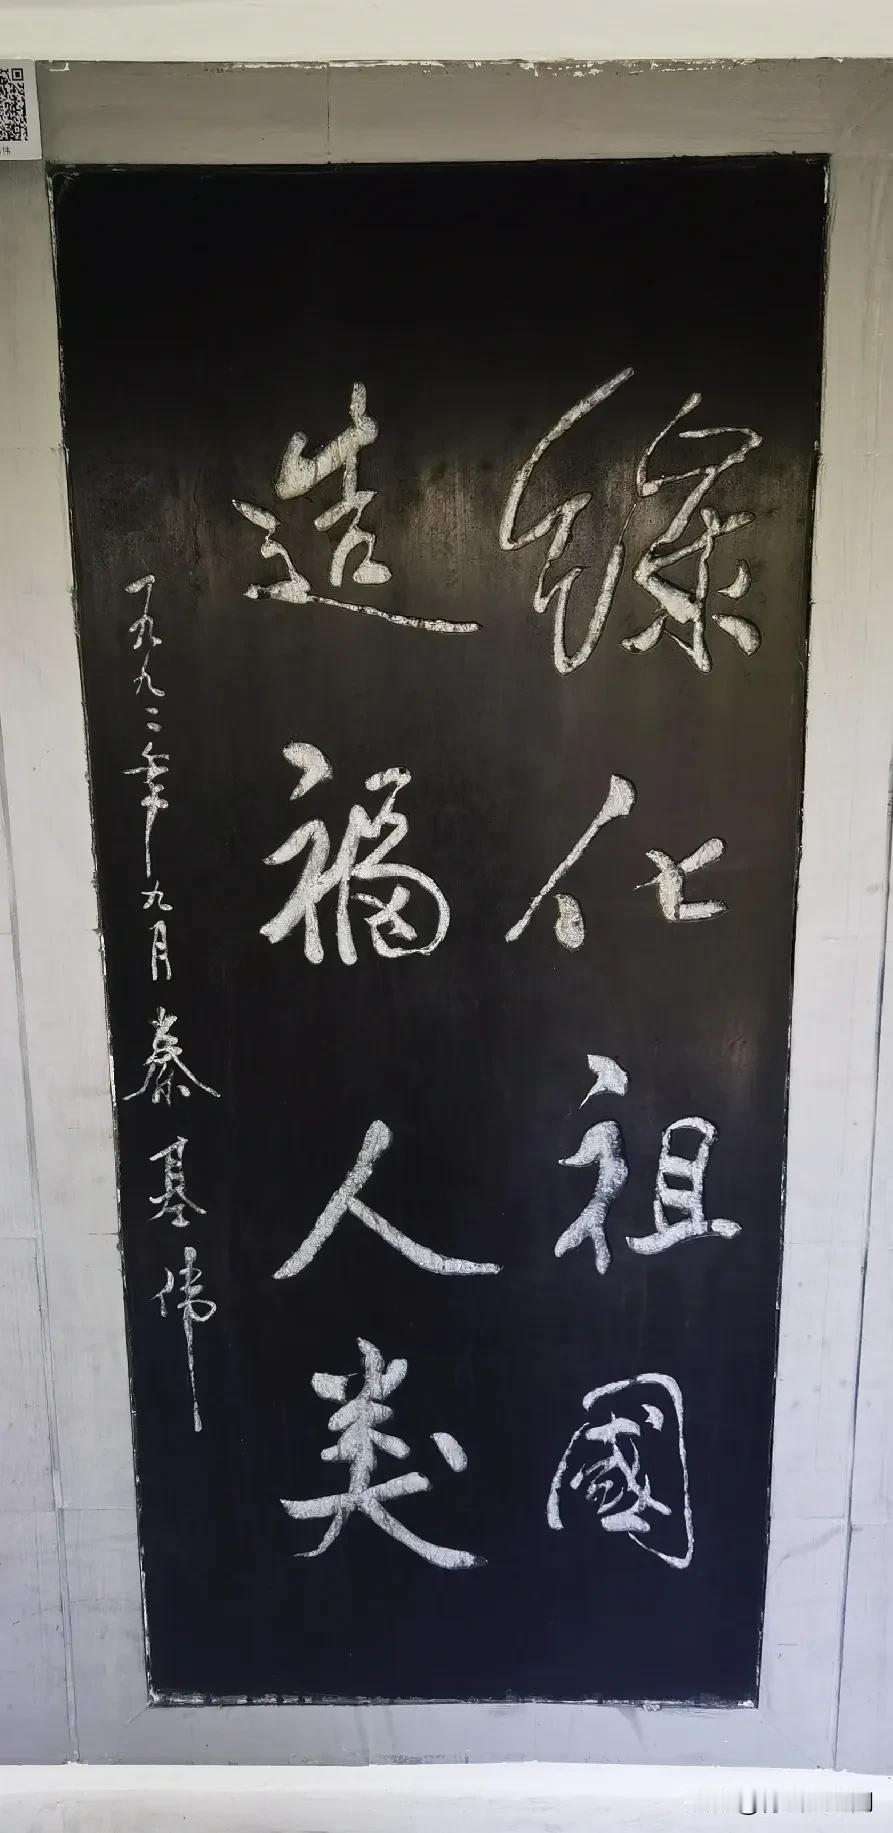 绿化祖國
造福人类
一九九二年九月 秦基伟